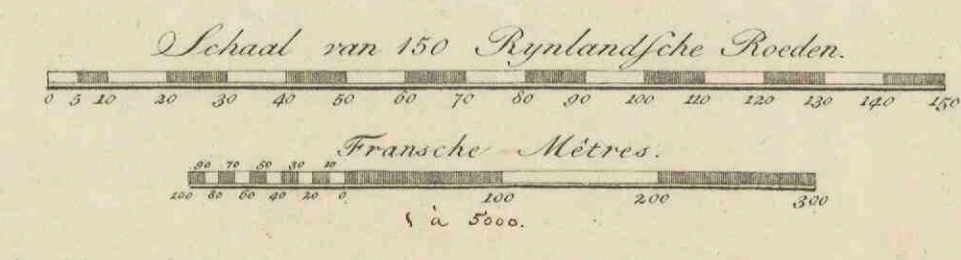 Schaal van 150 Rynlandsche Roeden.
0 5 10 20 30 40 50 60 70 80 90 100 110 120 130 140 150
Fransche Mêtres.
90 70 50 30 10
100 80 60 40 20 0 100 200 300
1 à 5000.